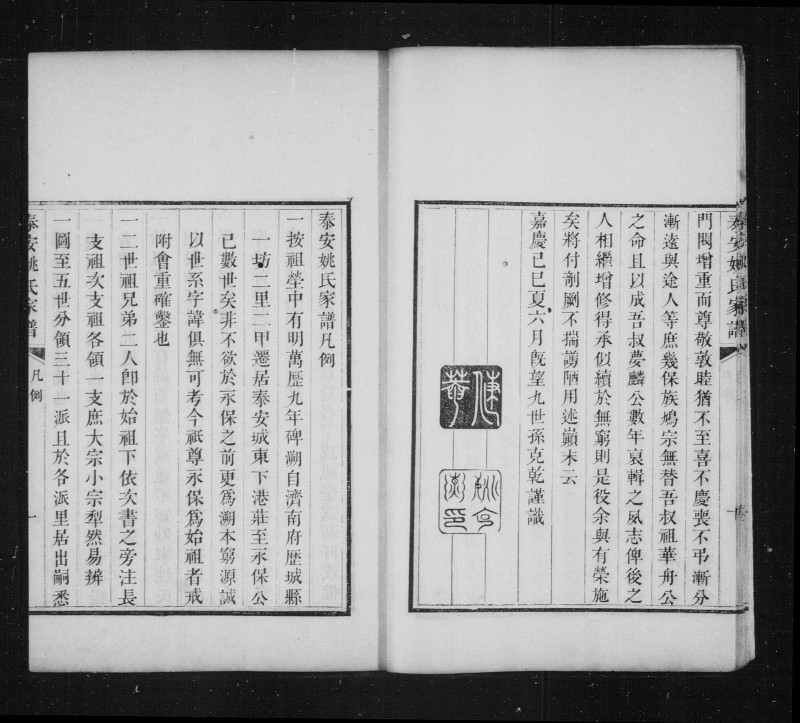 泰安姚氏家譜
門閥增重而尊敬敦睦猶不至喜不慶喪不弔漸分
漸遠與途人等庶幾保族鳩宗無替吾叔祖華舟公
之命且以成吾叔夢麟公數年裒輯之夙志俾後之
人相繼增修得承似續於無窮則是役余與有榮施
矣將付剞劂不揣譾陋用述巔末云
嘉慶己巳夏六月旣望九世孫克乾謹識
泰安姚氏家譜凡例
一按祖塋中有明萬歷九年碑溯自濟南府歷城縣
一坊二里二甲遷居泰安城東下港莊至永保公
已數世矣非不欲於永保之前更爲溯本窮源誠
以世系字諱俱無可考今祇尊永保爲始祖者戒
附會重確鑿也
一二世祖兄弟二人卽於始祖下依次書之旁注長
支祖次支祖各領一支庶大宗小宗犁然易辨
一圖至五世分領三十一派且於各派里居出嗣悉
泰安姚氏家譜
凡例
一